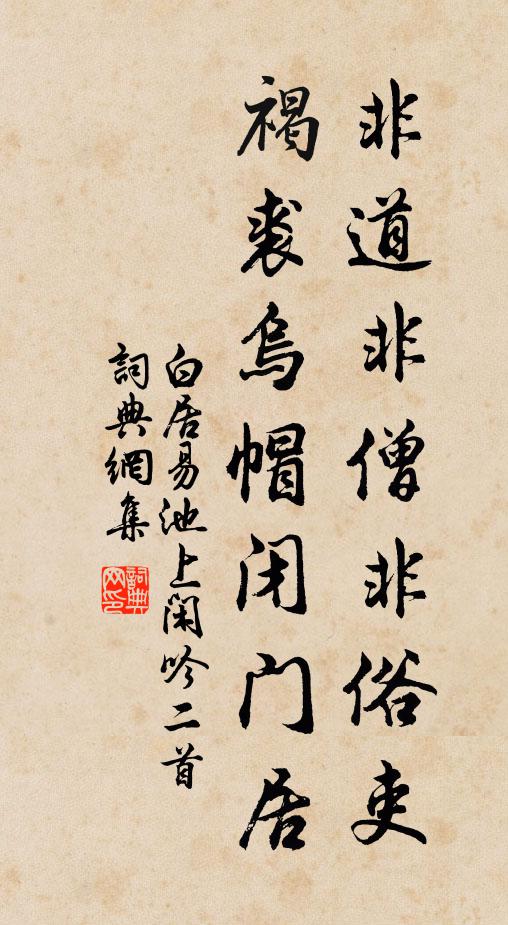 非道非僧非俗吏
褐裘烏帽闭门居
白居易池上閑吟二首
詞典網集
詞典网印